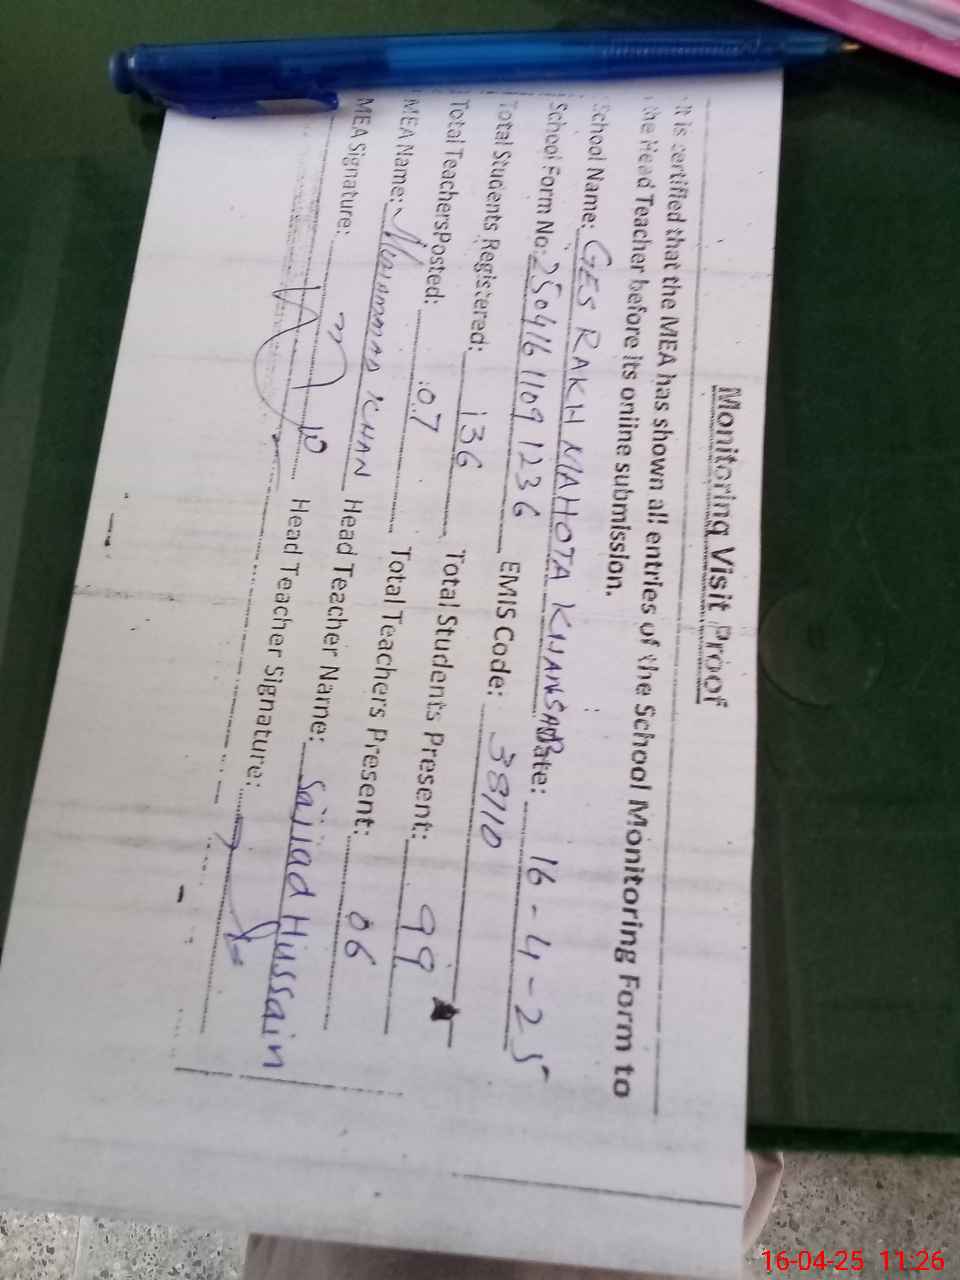 Monitoring Visit Proof
It is certified that the MEA has shown all entries of the School Monitoring Form to
the Head Teacher before its online submission.
School Name: GES RAKH MAHOTA KHANSAR Date: 16-4-25
School Form No: 2504161109 1236 EMIS Code: 38110
Total Students Registered: 136 Total Students Present: 99
Total Teachers Posted: 07 Total Teachers Present: 06
MEA Name: Muhammad KHAN Head Teacher Name: Sajjad Hussain
MEA Signature: Head Teacher Signature:
16-04-25 11:26